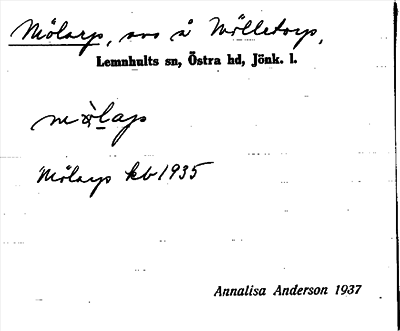 Mölarp, avs å Mölletorp,
Lemnhults sn, Östra hd, Jönk. l.
Mölarp kb 1935
Annalisa Anderson 1937